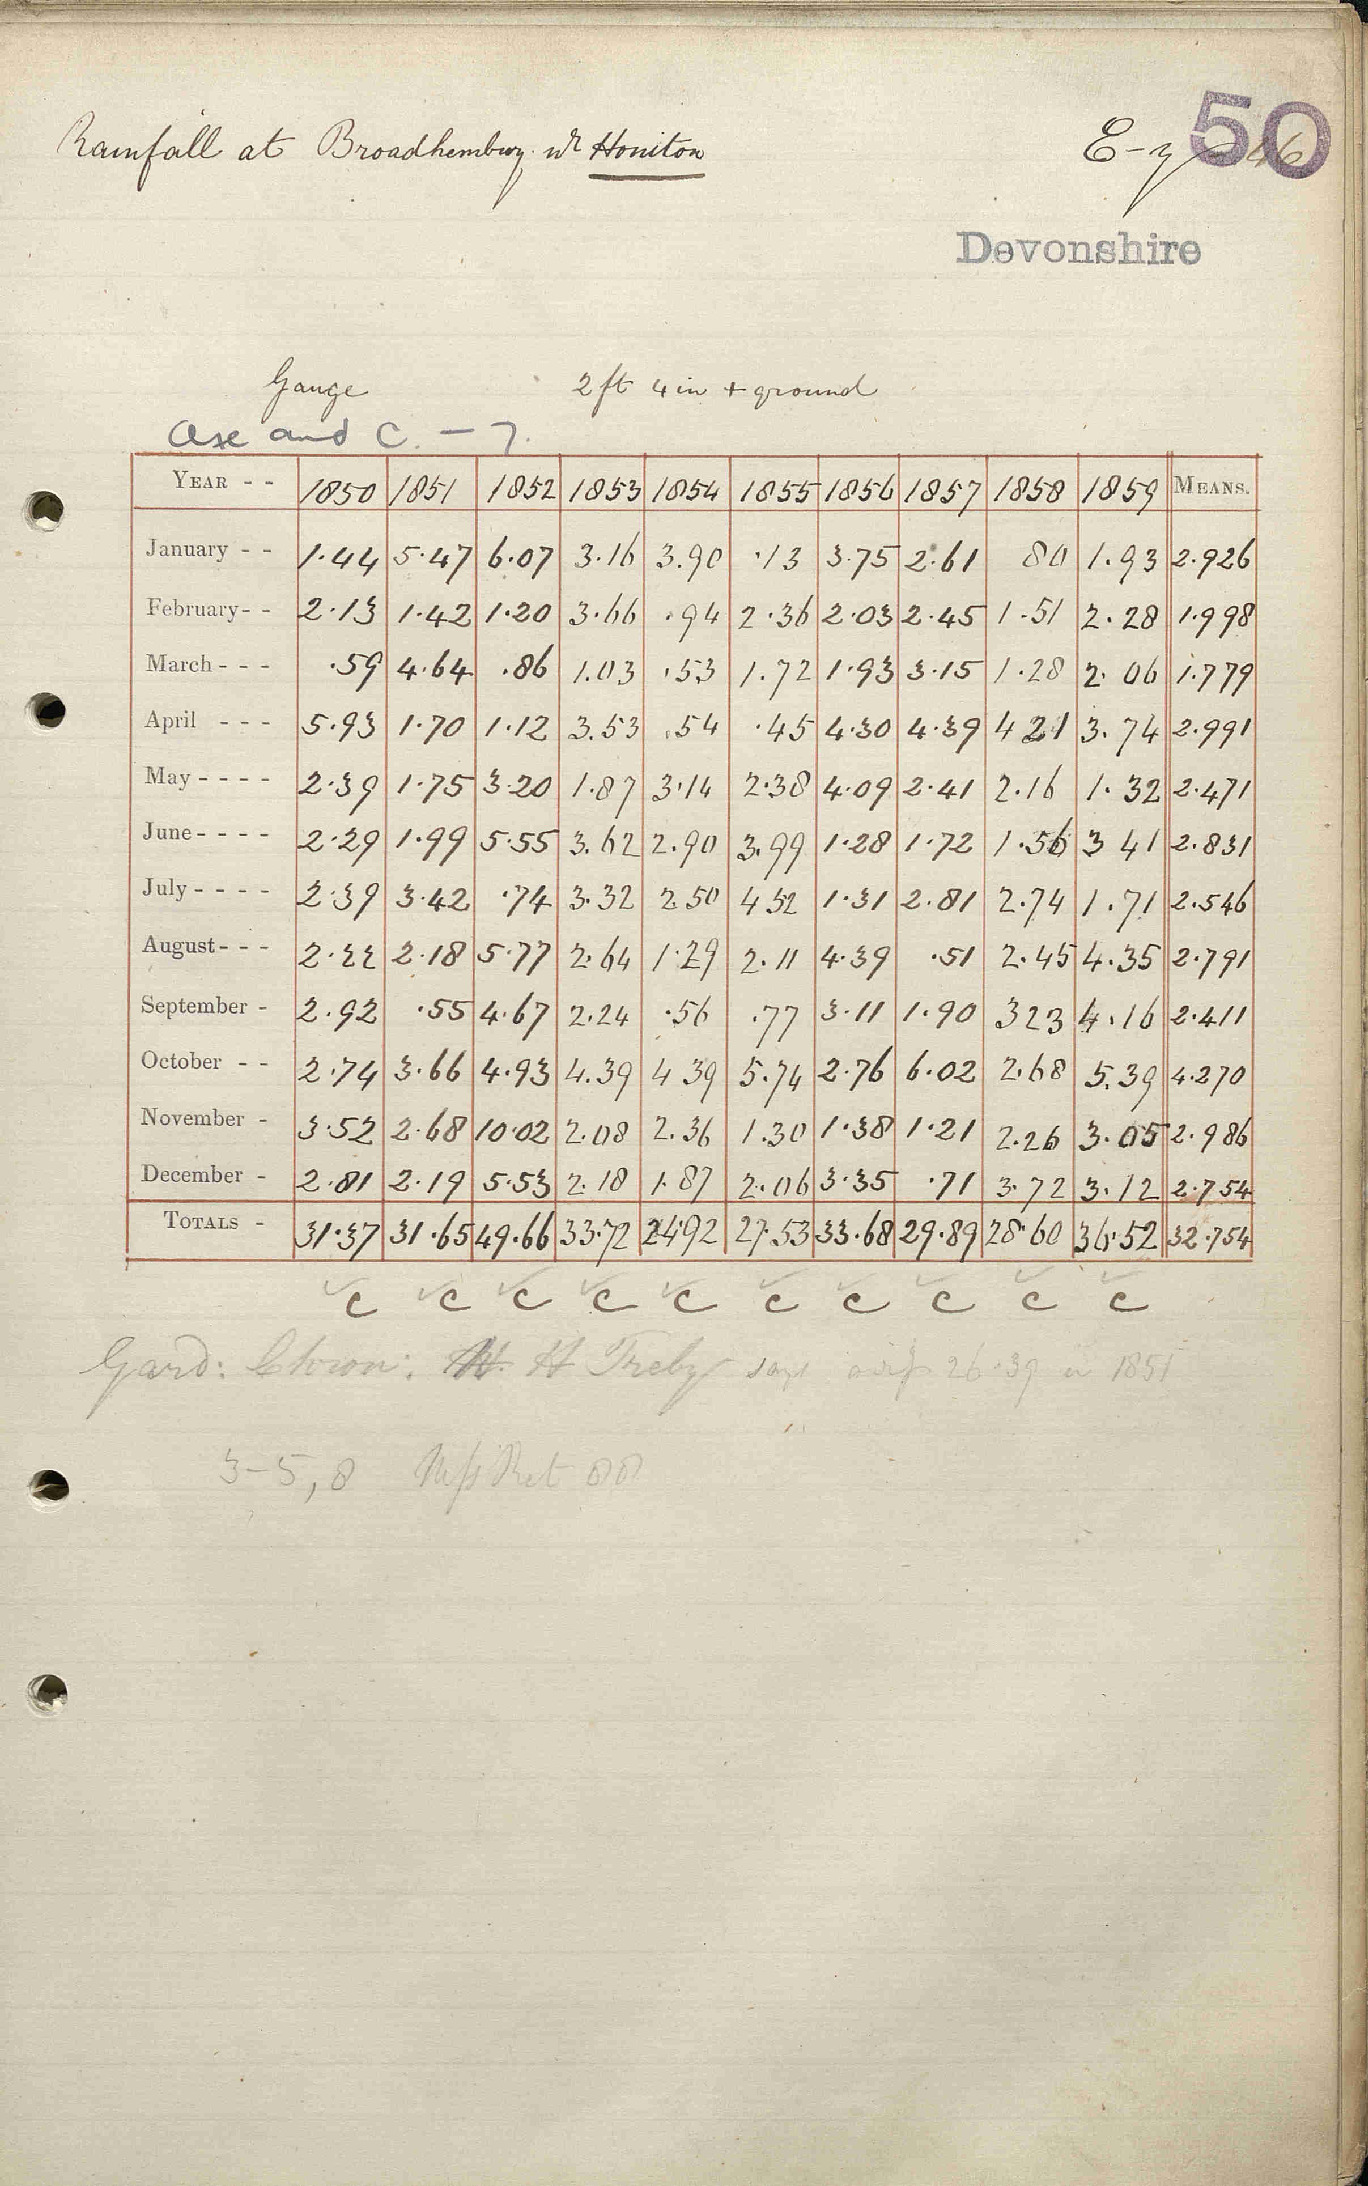 Rainfall at Broadhembury nr Honiton
50
Devonshire
Gauge 2 ft 4 in + ground
Axe and C. — 7.
YEAR - - 1850 1851 1852 1853 1854 1855 1856 1857 1858 1859 MEANS.
January - - 1.44 5.47 6.07 3.16 3.90 .13 3.75 2.61 80 1.93 2.926
February - - 2.13 1.42 1.20 3.66 .94 2.36 2.03 2.45 1.51 2.28 1.998
March - - - .59 4.64 .86 1.03 .53 1.72 1.93 3.15 1.28 2.06 1.779
April - - - 5.93 1.70 1.12 3.53 .54 .45 4.30 4.39 4 21 3.74 2.991
May - - - - 2.39 1.75 3.20 1.87 3.14 2.38 4.09 2.41 2.16 1.32 2.471
June - - - - 2.29 1.99 5.55 3.62 2.90 3.99 1.28 1.72 1.56 3 41 2.831
July - - - - 2.39 3.42 .74 3.32 2.50 4 52 1.31 2.81 2.74 1.71 2.546
August - - - 2.22 2.18 5.77 2.64 1.29 2.11 4.39 .51 2.45 4.35 2.791
September - 2.92 .55 4.67 2.24 .56 .77 3.11 1.90 3 23 4.16 2.411
October - - 2.74 3.66 4.93 4.39 4 39 5.74 2.76 6.02 2.68 5.39 4.270
November - 3.52 2.68 10.02 2.08 2.36 1.30 1.38 1.21 2.26 3.05 2.986
December - 2.81 2.19 5.53 2.18 1.87 2.06 3.35 .71 3.72 3.12 2.754
TOTALS - 31.37 31.65 49.66 33.72 24.92 27.53 33.68 29.89 28.60 36.52 32.754
C C C C C C C C C C
Gard: Chron: H Treby says 26.39 in 1851
3-5, 8 Ret